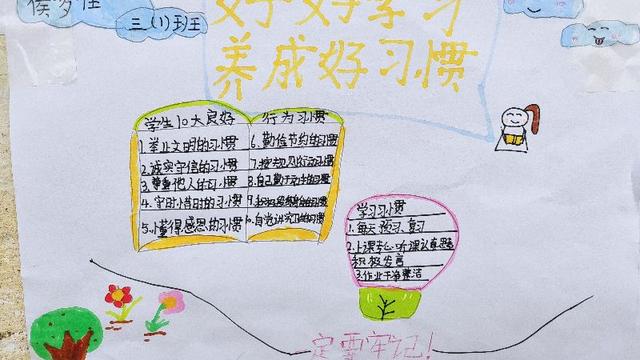 三(1)班
好好学习
养成好习惯
学生10大良好
行为习惯
1.举止文明的习惯
2.诚实守信的习惯
3.尊重他人的习惯
4.守时惜时的习惯
5.懂得感恩的习惯
6.勤俭节约的习惯
8.自己动手的习惯
10.自觉讲究卫的习惯
学习习惯
1.每天预习、复习
2.上课专心听课认真思考
积极发言
3.作业干净整洁
一定要牢记!